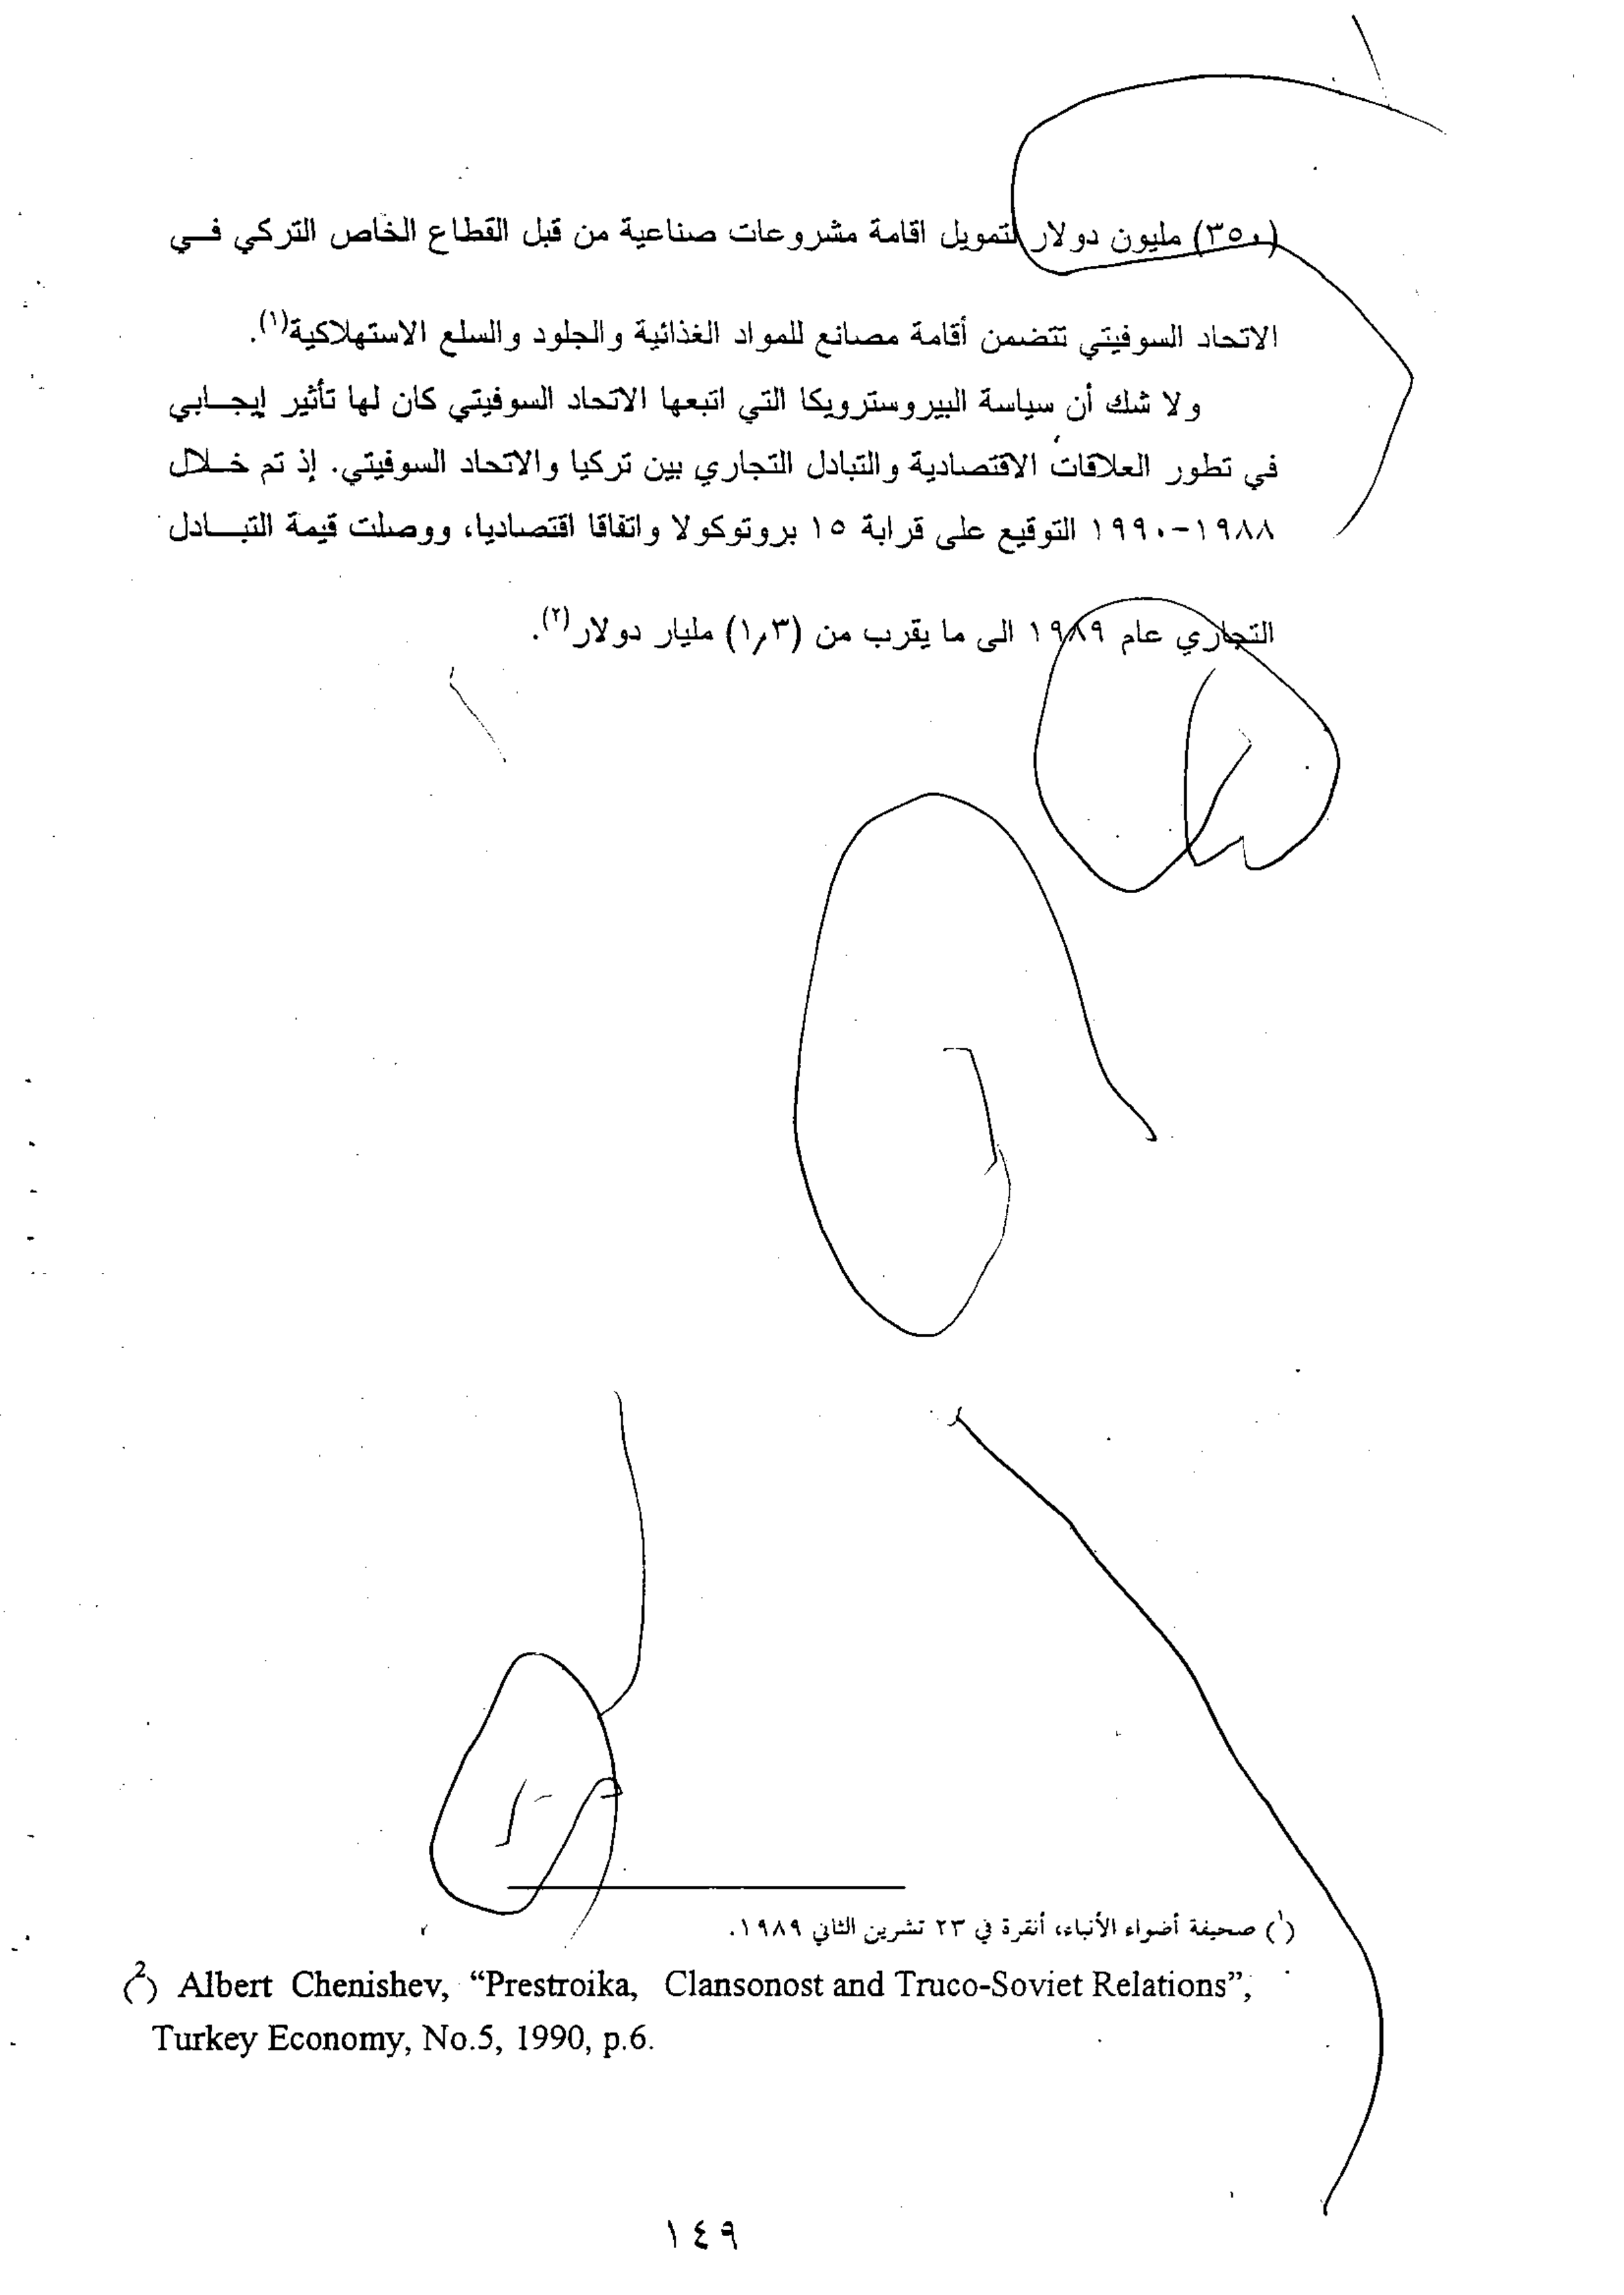 (٣٥٠) مليون دولار لتمويل اقامة مشروعات صناعية من قبل القطاع الخاص التركي فـــي
الاتحاد السوفيتي تتضمن أقامة مصانع للمواد الغذائية والجلود والسلع الاستهلاكية(١).
ولا شك أن سياسة البيروسترويكا التي اتبعها الاتحاد السوفيتي كان لها تأثير إيجــابي
في تطور العلاقات الاقتصادية والتبادل التجاري بين تركيا والاتحاد السوفيتي. إذ تم خـــلال
١٩٨٨-١٩٩٠ التوقيع على قرابة ١٥ بروتوكولا واتفاقا اقتصاديا، ووصلت قيمة التبـــادل
التجاري عام ١٩٨٩ الى ما يقرب من (١,٣) مليار دولار(٢).
(١) صحيفة أضواء الأنباء، أنقرة في ٢٣ تشرين الثاني ١٩٨٩.
(2) Albert Chenishev, “Prestroika, Clansonost and Truco-Soviet Relations”,
Turkey Economy, No.5, 1990, p.6.
١٤٩